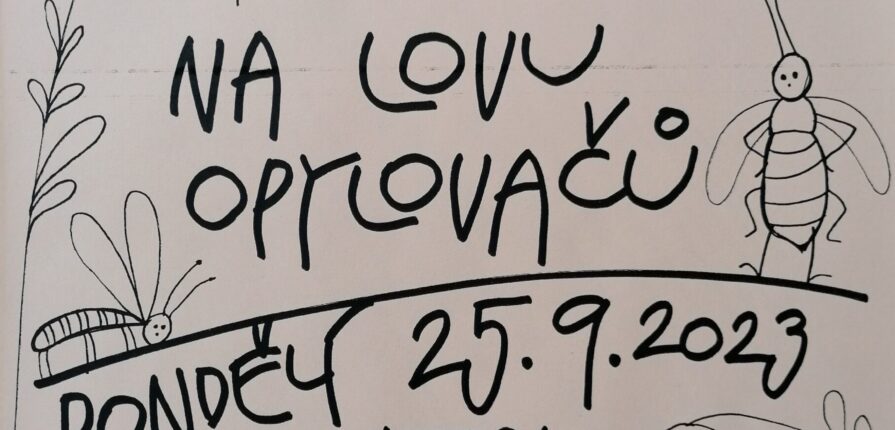 NA LOVU
OPYLOVAČŮ
PONDĚLÍ 25.9.2023